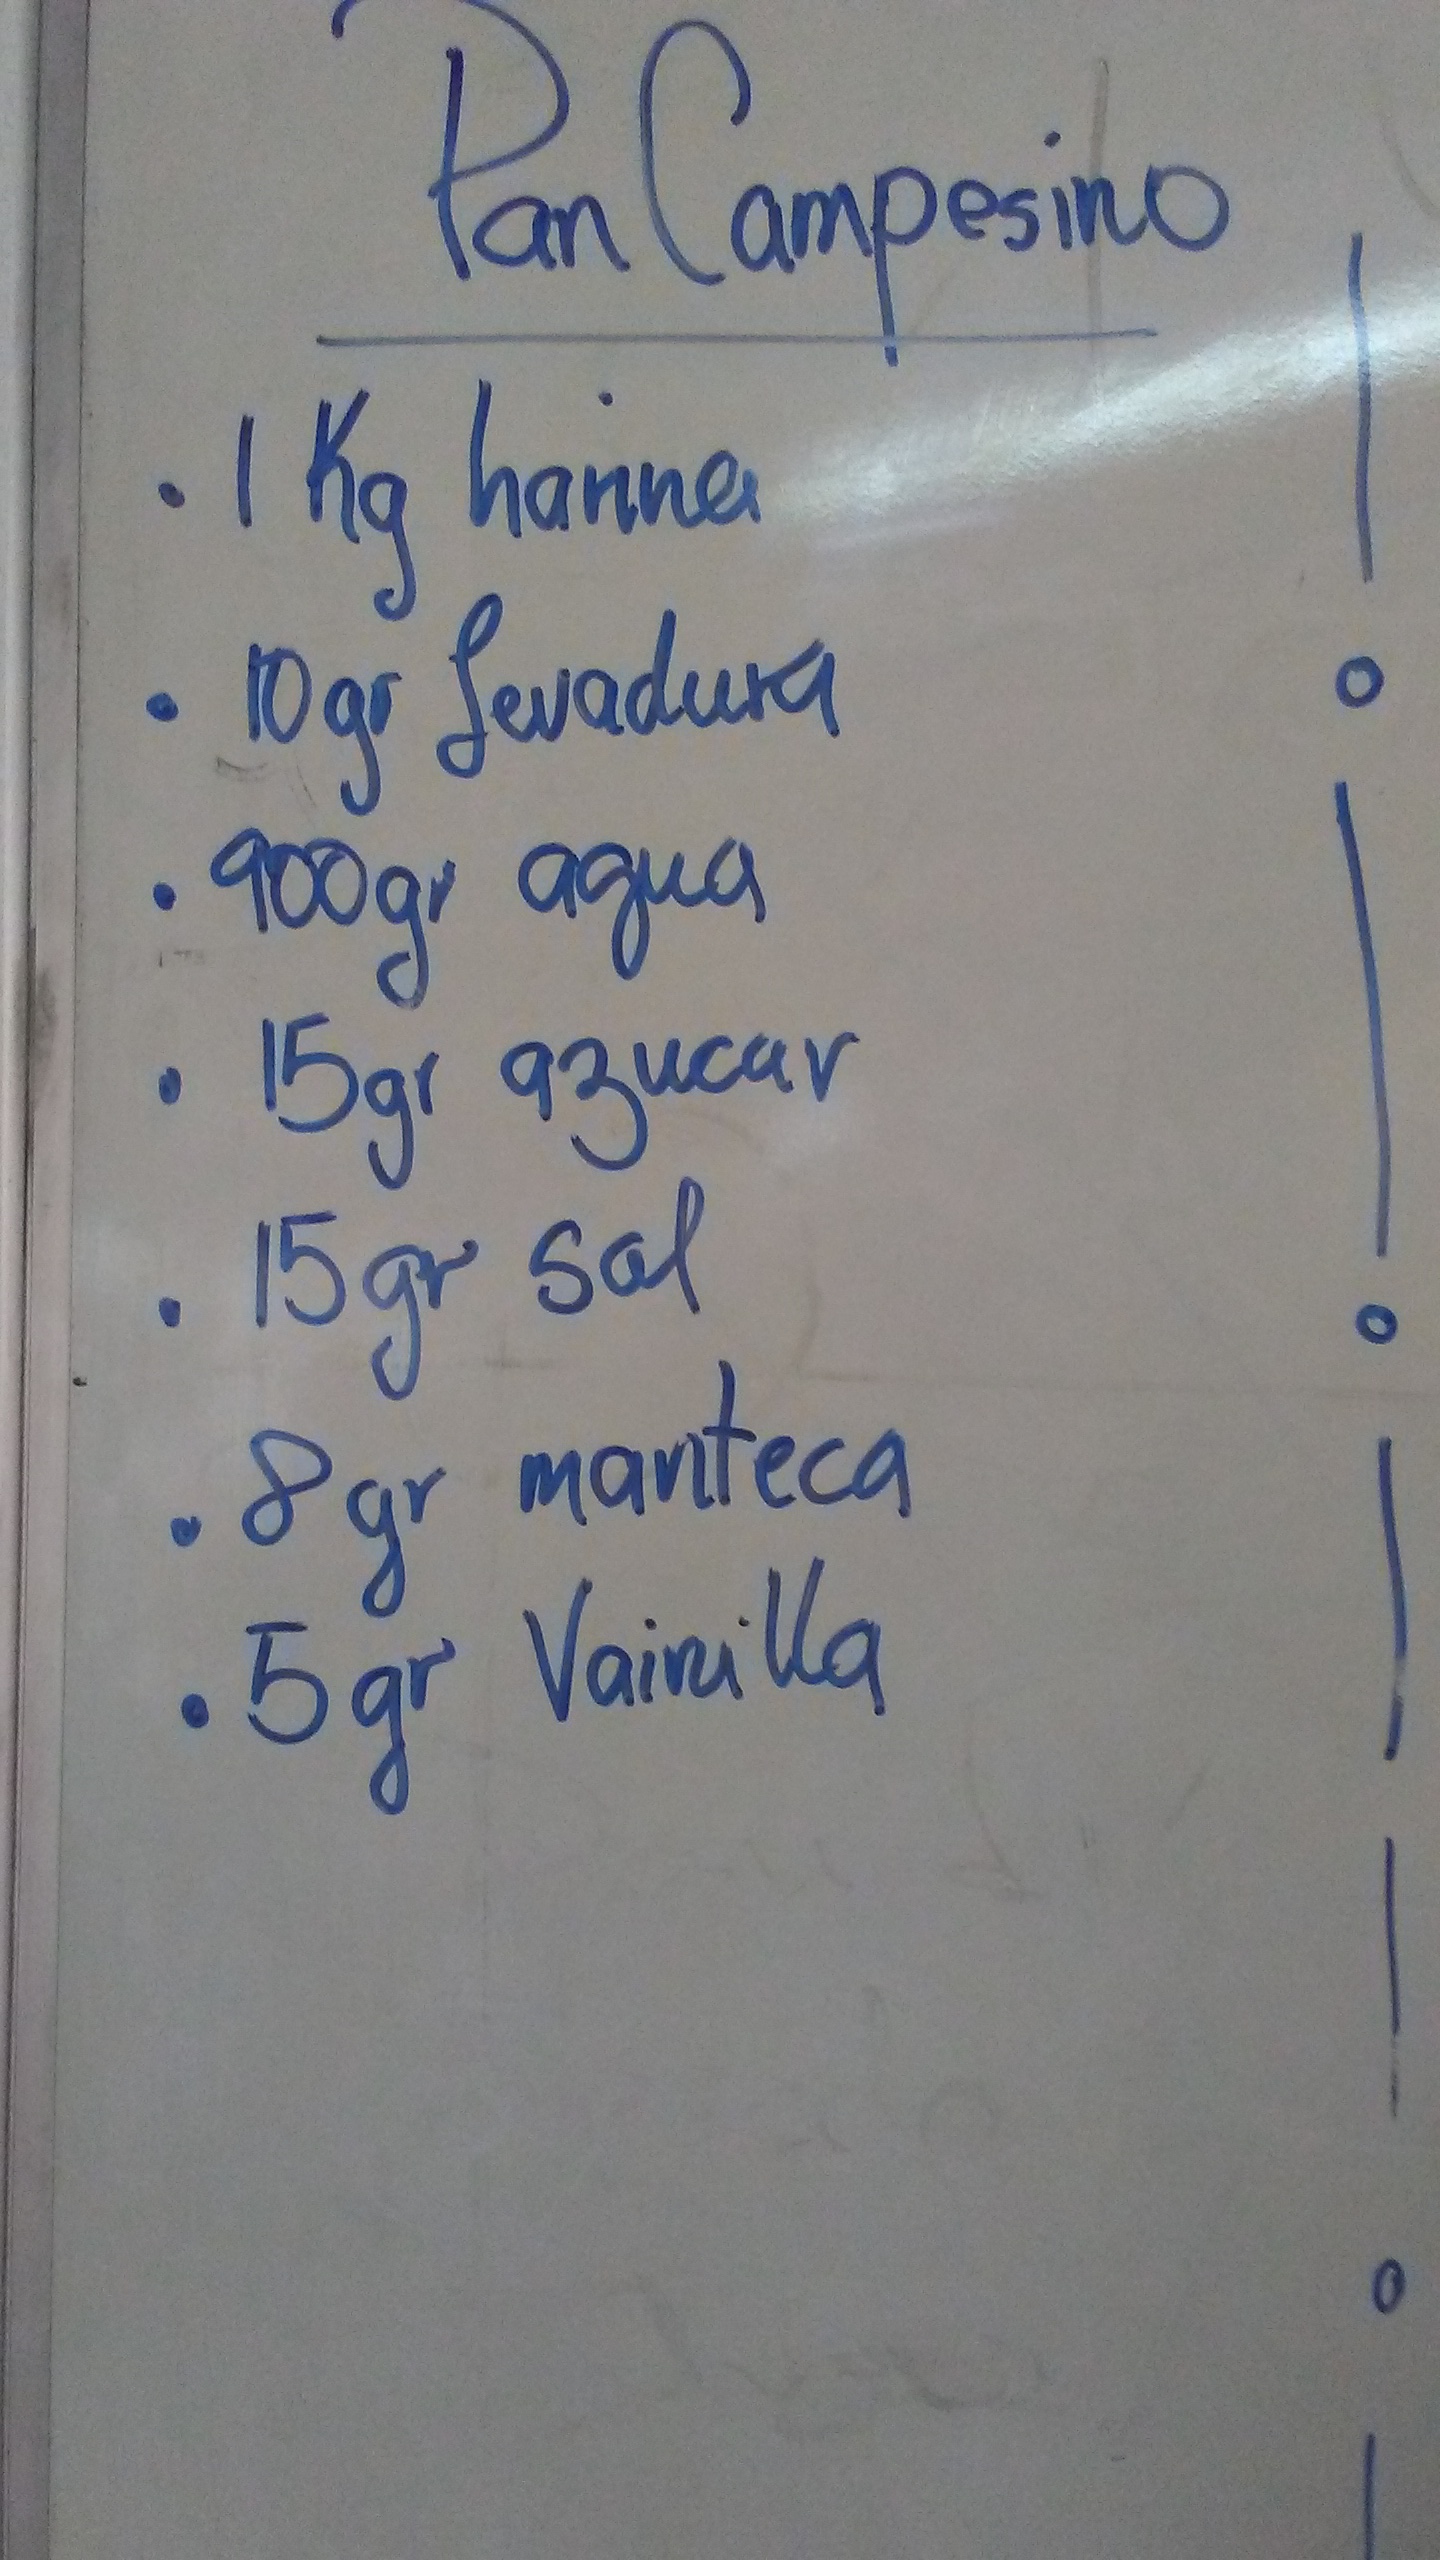 Pan Campesino
• 1 Kg harina
• 10gr Levadura
• 900gr agua
• 15gr azucar
• 15gr sal
• 8gr manteca
• 5gr Vainilla